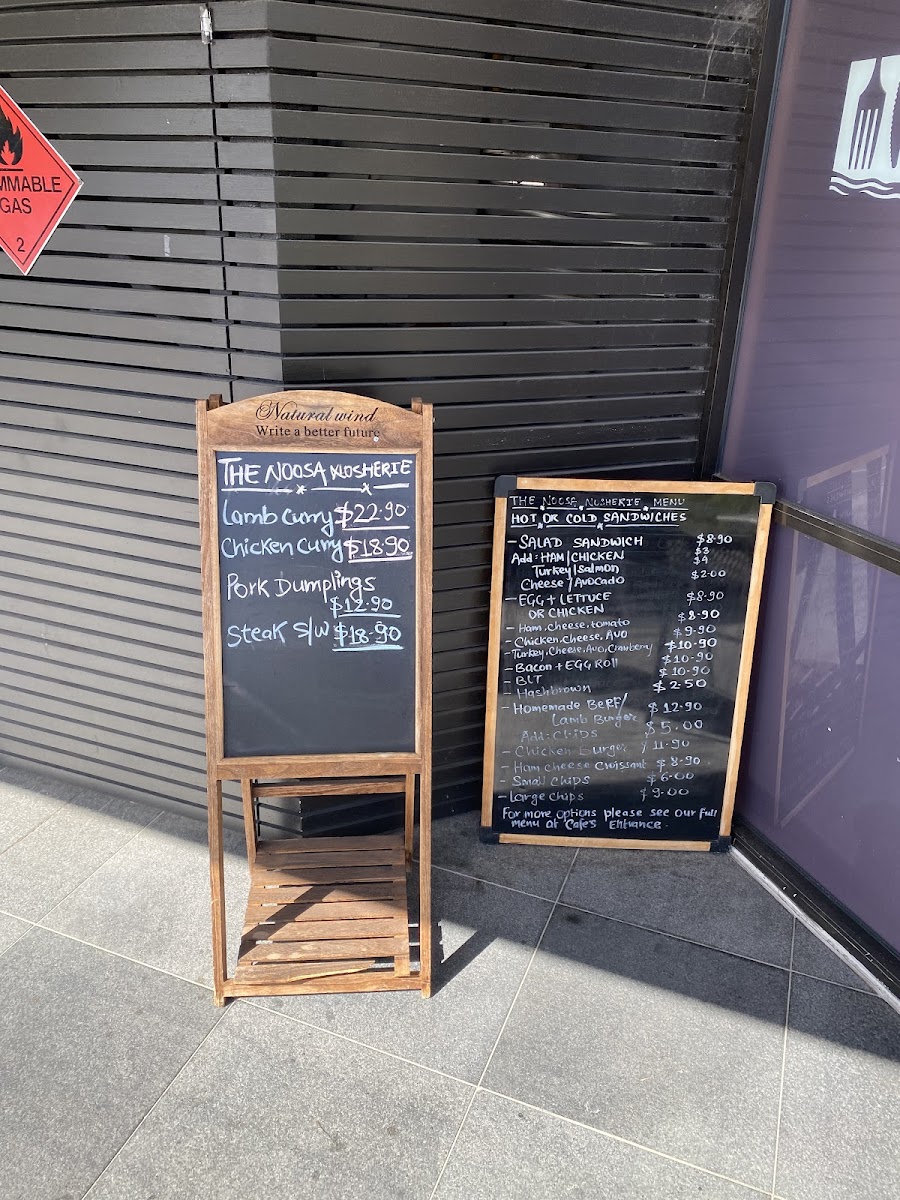 MMABLE
GAS
2
Natural wind
Write a better future
THE NOOSA NOSHERIE
Lamb Curry $22.90
Chicken Curry $18.90
Pork Dumplings
$12.90
Steak S/W $18.90
THE NOOSA NOSHERIE MENU
HOT OR COLD SANDWICHES
- SALAD SANDWICH $8.90
Add: HAM/CHICKEN $3
Turkey/Salmon $4
Cheese/Avocado $2.00
- EGG + LETTUCE $8.90
OR CHICKEN
- Ham, cheese, tomato $8.90
- Chicken, cheese, AVO $9.90
- Turkey, Cheese, Avo, Cranberry $10.90
- Bacon + EGG Roll $10.90
- BLT $10.90
- Hashbrown $2.50
- Homemade BeRF/ $12.90
Lamb Burger
Add: Chips $5.00
- Chicken Burger 11.90
- Ham cheese Croissant $8.90
- Small chips $6.00
- Large chips $9.00
For more options please see our full
menu at Cafe's Entrance.